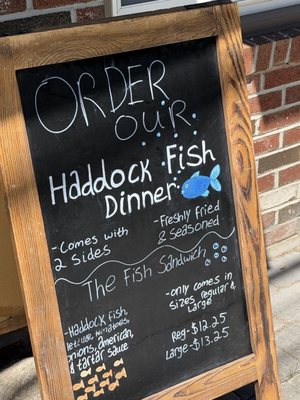 ORDER
OUR
Haddock Fish
Dinner
-Comes with
2 Sides
-Freshly Fried
& seasoned
The Fish Sandwich
-Haddock fish,
lettuce, tomatoes,
onions, american,
and tartar sauce
-only comes in
sizes regular &
Large
Reg-$12.25
Large-$13.25